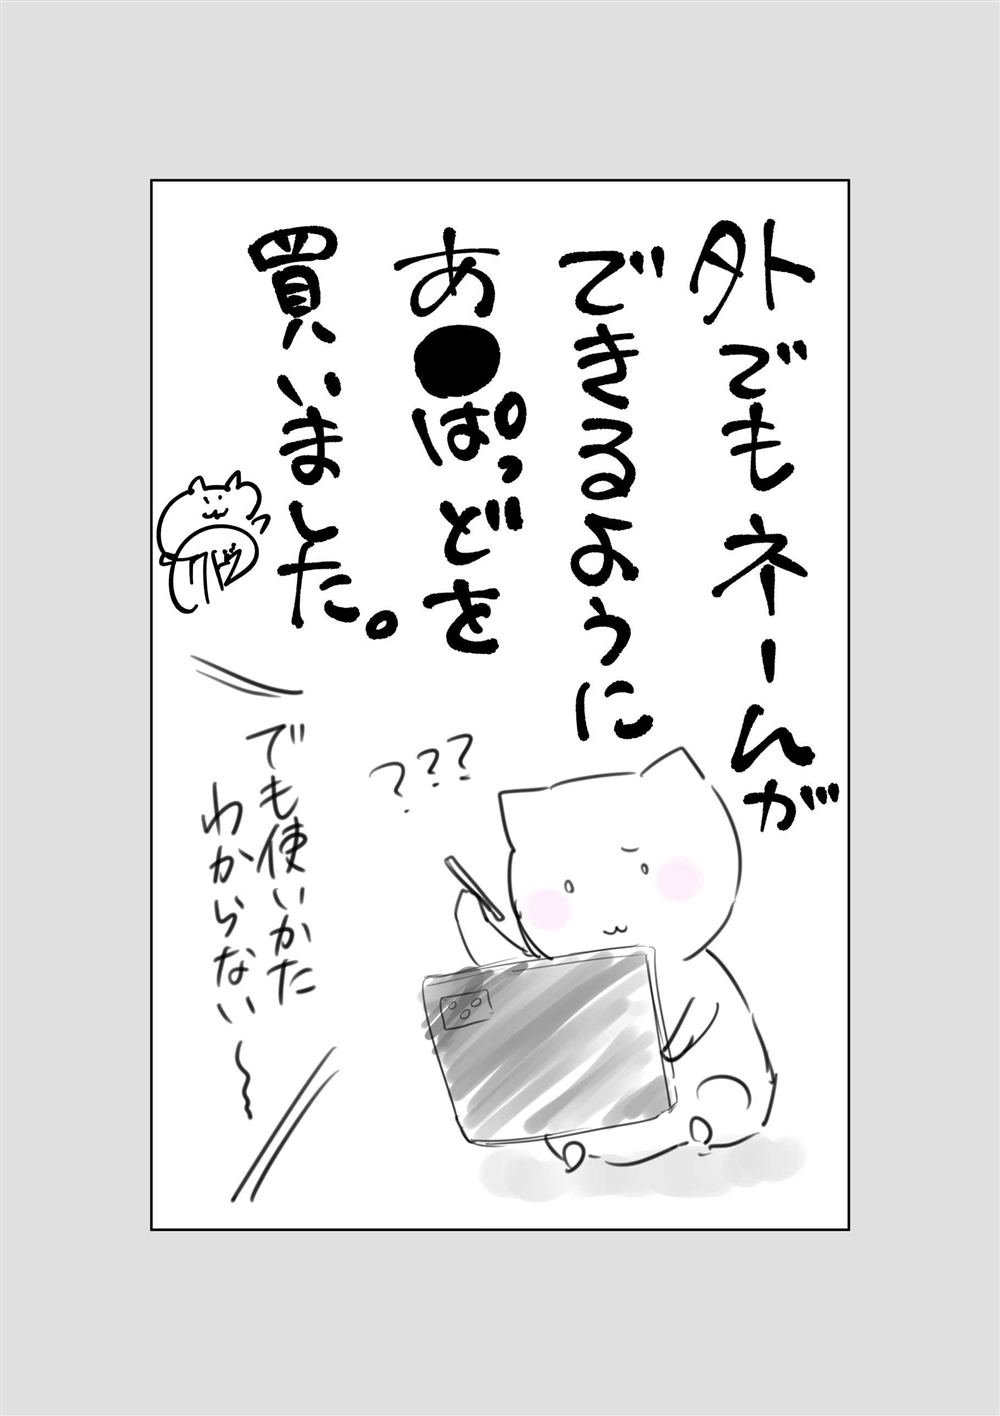 外でもネーんが
できるように
あ●ぱっどを
買いました。
???
でも使いかた
わからない〜